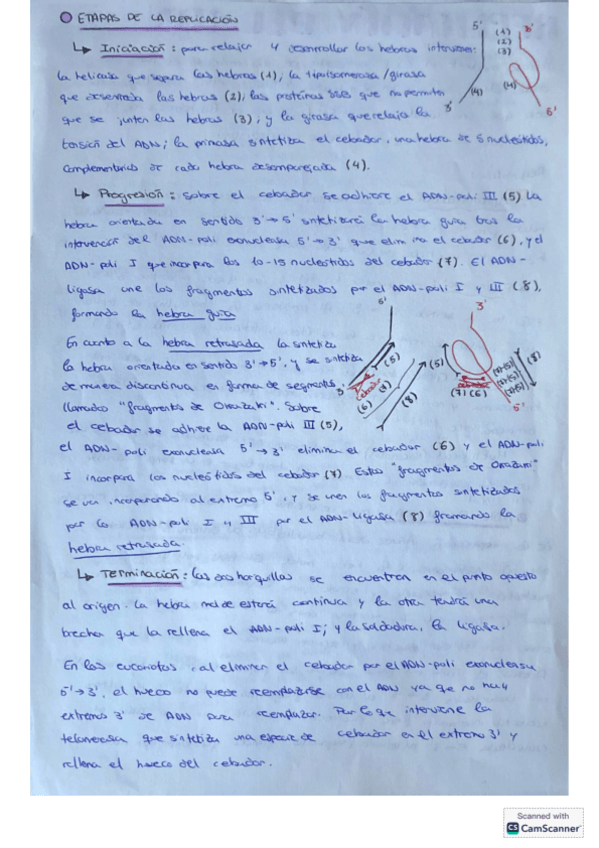 ETAPAS DE LA REPLICACIÓN
↳ Iniciación: para relajar y desenrollar las hebras intervienen:
la helicasa que separa las hebras (1), la topoisomerasa/girasa
que desenreda las hebras (2), las proteínas SSB que no permiten
que se junten las hebras (3), y la girasa que relaja la
torsión del ADN; la primasa sintetiza el cebador, una hebra de 5 nucleótidos,
complementarios de cada hebra desemparejada (4).
↳ Progresión: sobre el cebador se adhiere el ADN-poli III (5) La
hebra orientada en sentido 3'→5' sintetizará la hebra guía tras la
intervención del ADN-poli exonucleasa 5'→3' que elimina el cebador (6), y el
ADN-poli I que incorpora los 10-15 nucleótidos del cebador (7). El ADN-
ligasa une los fragmentos sintetizados por el ADN-poli I y III (8),
formando la hebra guía
En cuanto a la hebra retrasada la sintetiza
la hebra orientada en sentido 3'→5', y se sintetiza
de manera discontinua en forma de segmentos
llamados "fragmentos de Okazaki". Sobre
el cebador se adhiere la ADN-poli III (5),
el ADN-poli exonucleasa 5'→3' elimina el cebador (6) y el ADN-poli
I incorpora los nucleótidos del cebador (7) Estos "fragmentos de Okazaki"
se van incorporando al extremo 5', y se unen los fragmentos sintetizados
por la ADN-poli I y III por el ADN-ligasa (8) formando la
hebra retrasada.
↳ Terminación: las dos horquillas se encuentran en el punto opuesto
al origen. La hebra molde estará continua y la otra tendrá una
brecha que la rellena el ADN-poli I; y la soldadura, la ligasa.
En los eucariotas, al eliminar el cebador por el ADN-poli exonucleasa
5'→3', el hueco no puede reemplazarse con el ADN ya que no hay
extremo 3' de ADN para reemplazar. Por lo que interviene la
telomerasa que sintetiza una especie de cebador en el extremo 3' y
rellena el hueco del cebador.
5'
3'
(1)
(2)
(3)
(4)
(4)
3'
5'
5'
3'
(5)
(5)
(8)
3'
cebador
(6)
(7)
(8)
(7) (6)
5'
Scanned with
CS CamScanner